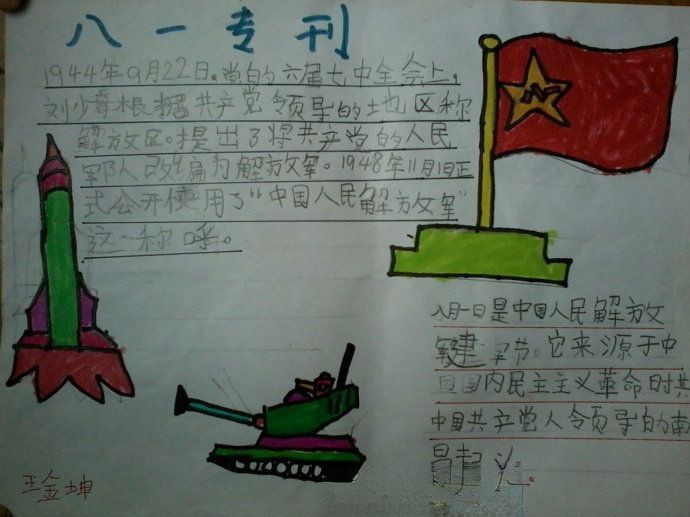 八一专刊
1944年9月22日。党的六届七中全会上，
刘少奇根据共产党领导的地区称
解放区。提出了将共产党的人民
军队改编为解放军。1948年11月1日正
式公开使用了“中国人民解放军”
这一称呼。
八一
八月一日是中国人民解放
军建军节。它来源于中
国国内民主主义革命时共
中国共产党人领导的南
昌起义。
王金坤